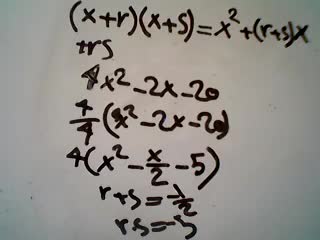 (x+r)(x+s)=x²+(r+s)x
+rs
4x²-2x-20
4/4(x²-2x-20)
4(x²-x/2-5)
r+s=-1/2
rs=-5